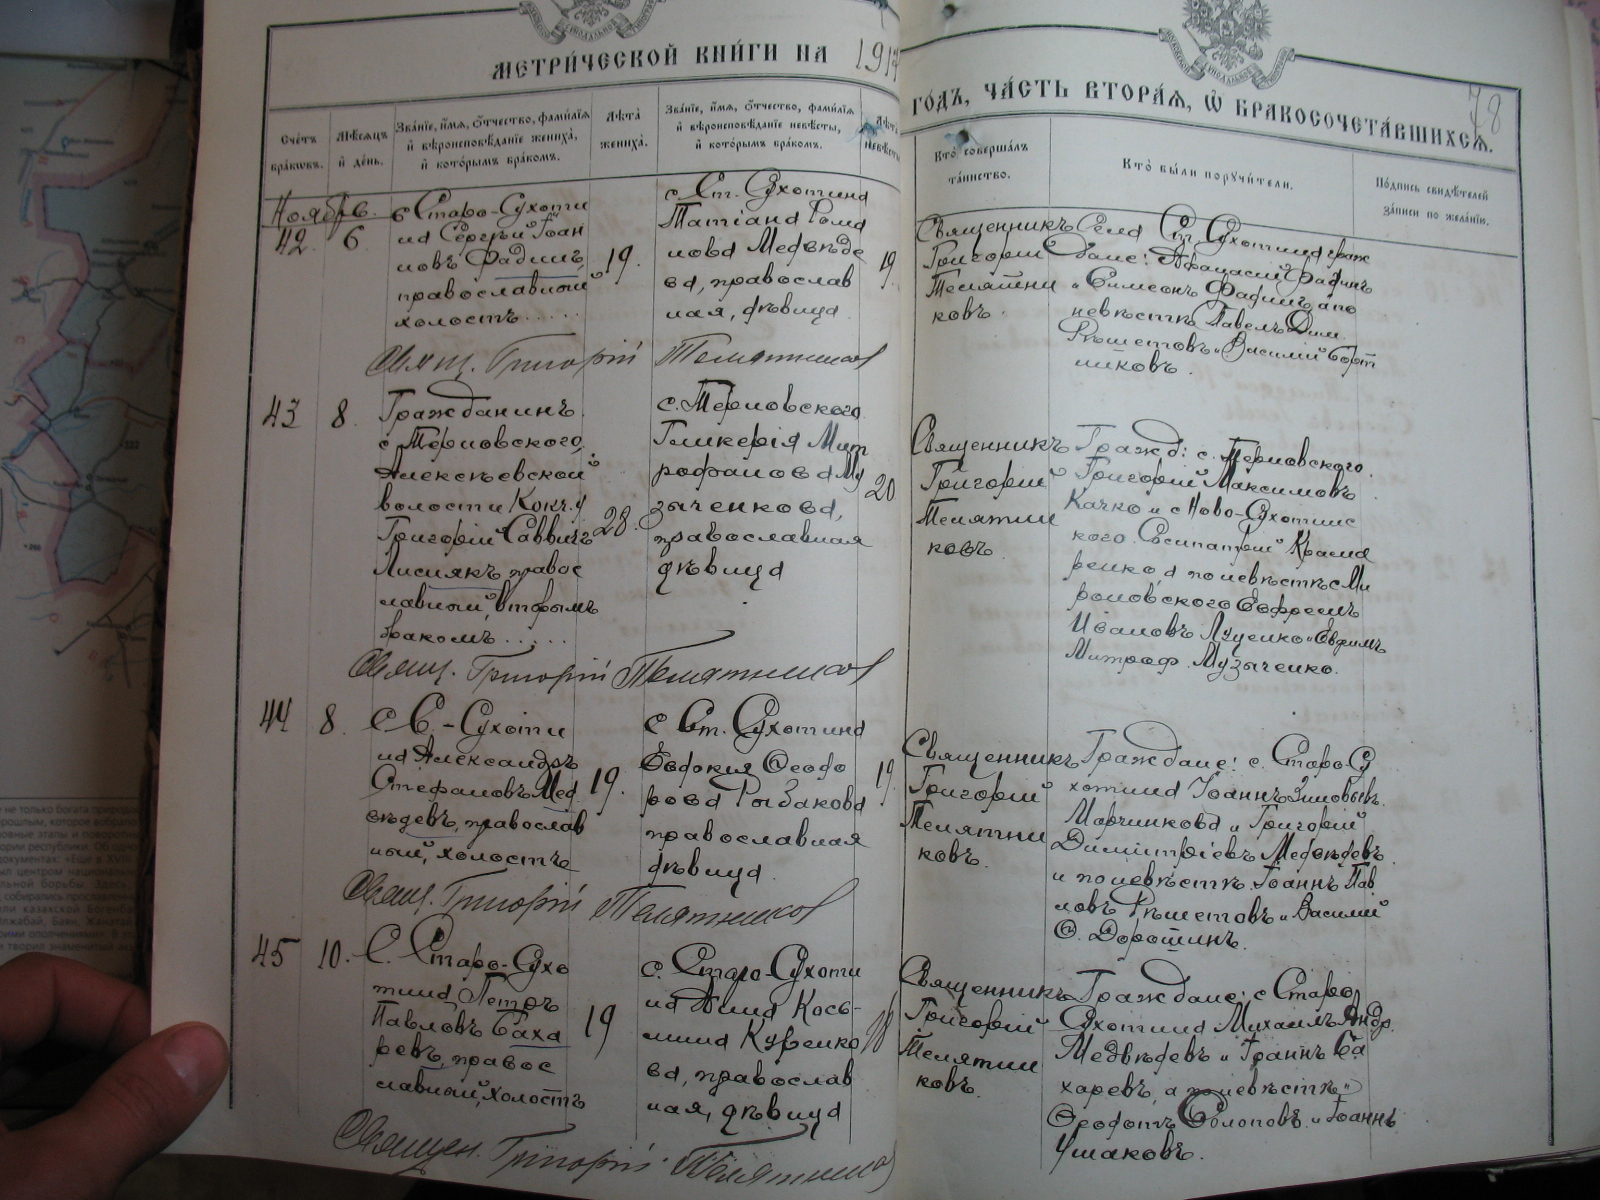 МЕТРИ́ЧЕСКОЙ КНИ́ГИ НА 1917
ГО́ДЪ, ЧА́СТЬ ВТОРА́Я, Ѽ БРАКОСОЧЕТА́ВШИХСЯ.
78
Сче́тъ бра́ковъ.
Мѣ́сяцъ и҆ де́нь.
Зва́нїе, и҆́мя, ѻ҆́тчество, фами́лїя
и҆ вѣроисповѣ́данїе жениха̀,
и҆ кото́рымъ бра́комъ.
Лѣ́та жениха̀.
Зва́нїе, и҆́мя, ѻ҆́тчество, фами́лїя
и҆ вѣроисповѣ́данїе невѣ́сты,
и҆ кото́рымъ бра́комъ.
Лѣ́та невѣ́сты
Кто̀ соверша́лъ
та́инство.
Кто̀ бы́ли порꙋчи́тели.
По́дпись свидѣ́телей
за́писи по жела́нїю.
Ноябрь.
42. 6.
с Старо-Сухоти
на Сергѣй Іоан
новъ Фадинъ,
православный
холостъ......
19.
с. Ст. Сухотина
Татіана Рома
нова Медвѣде
ва, православ
ная, дѣвица
19.
Священникъ
Григорій
Телятни
ковъ.
Села Ст. Сухотина граж
дане: Афанасій Фадинъ
и Симеонъ Фадинъ, а по
невѣстѣ Павелъ Дим.
Рѣшетовъ и Василій Борт
никовъ.
Свящ. Григорій Телятников
43 8.
Гражданинъ
с Терновского,
Алексѣевской
волости Кокч. у
Григорій Саввичъ
Лисиякъ правос
лавный, вторымъ
бракомъ......
28.
с. Терновского
Гликерія Мит
рофанова Му
зыченкова,
православная
дѣвица
20.
Священникъ
Григорій
Телятни
ковъ.
Гражд: с. Терновского.
Григорій Максимовъ
Качко и с Ново-Сухотинс
кого Сосипатръ Крама
ренко, а по невѣстѣ с Ми
роновского Евфремъ
Ивановъ Луценко и Евфимъ
Митроф. Музыченко.
Свящ. Григорій Телятников
44 8.
с С.-Сухоти
на Александръ
Стефановъ Мед
вѣдевъ, православ
ный, холостъ
19.
с Ст. Сухотина
Евдокія Ѳеодо
рова Рыбакова
православная
дѣвица.
19
Священникъ
Григорій
Телятни
ковъ.
Граждане: с. Старо Су
хотина Іоаннъ Зиновьевъ.
Марчинкова и Григорій
Димитріевъ Медвѣдевъ.
и по невѣстѣ Іоаннъ Пав
ловъ Рѣшетовъ и Василій
Ѳ. Дорошинъ.
Свящ. Григорій Телятников
45 10.
С. Старо-Сухо
тина Петръ
Павловъ Баха
ревъ, правос
лавный, холостъ
19
с. Старо-Сухоти
на Анна Кось-
мина Куренко
ва, православ
ная, дѣвица
18
Священникъ
Григорій
Телятни
ковъ.
Граждане: с Старо
Сухотина Михаилъ Андр.
Медвѣдевъ и Іоаннъ Ба
харевъ, а по невѣстѣ
Ѳеодотъ Солоповъ и Іоаннъ
Ушаковъ.
Священ. Григорій Телятников